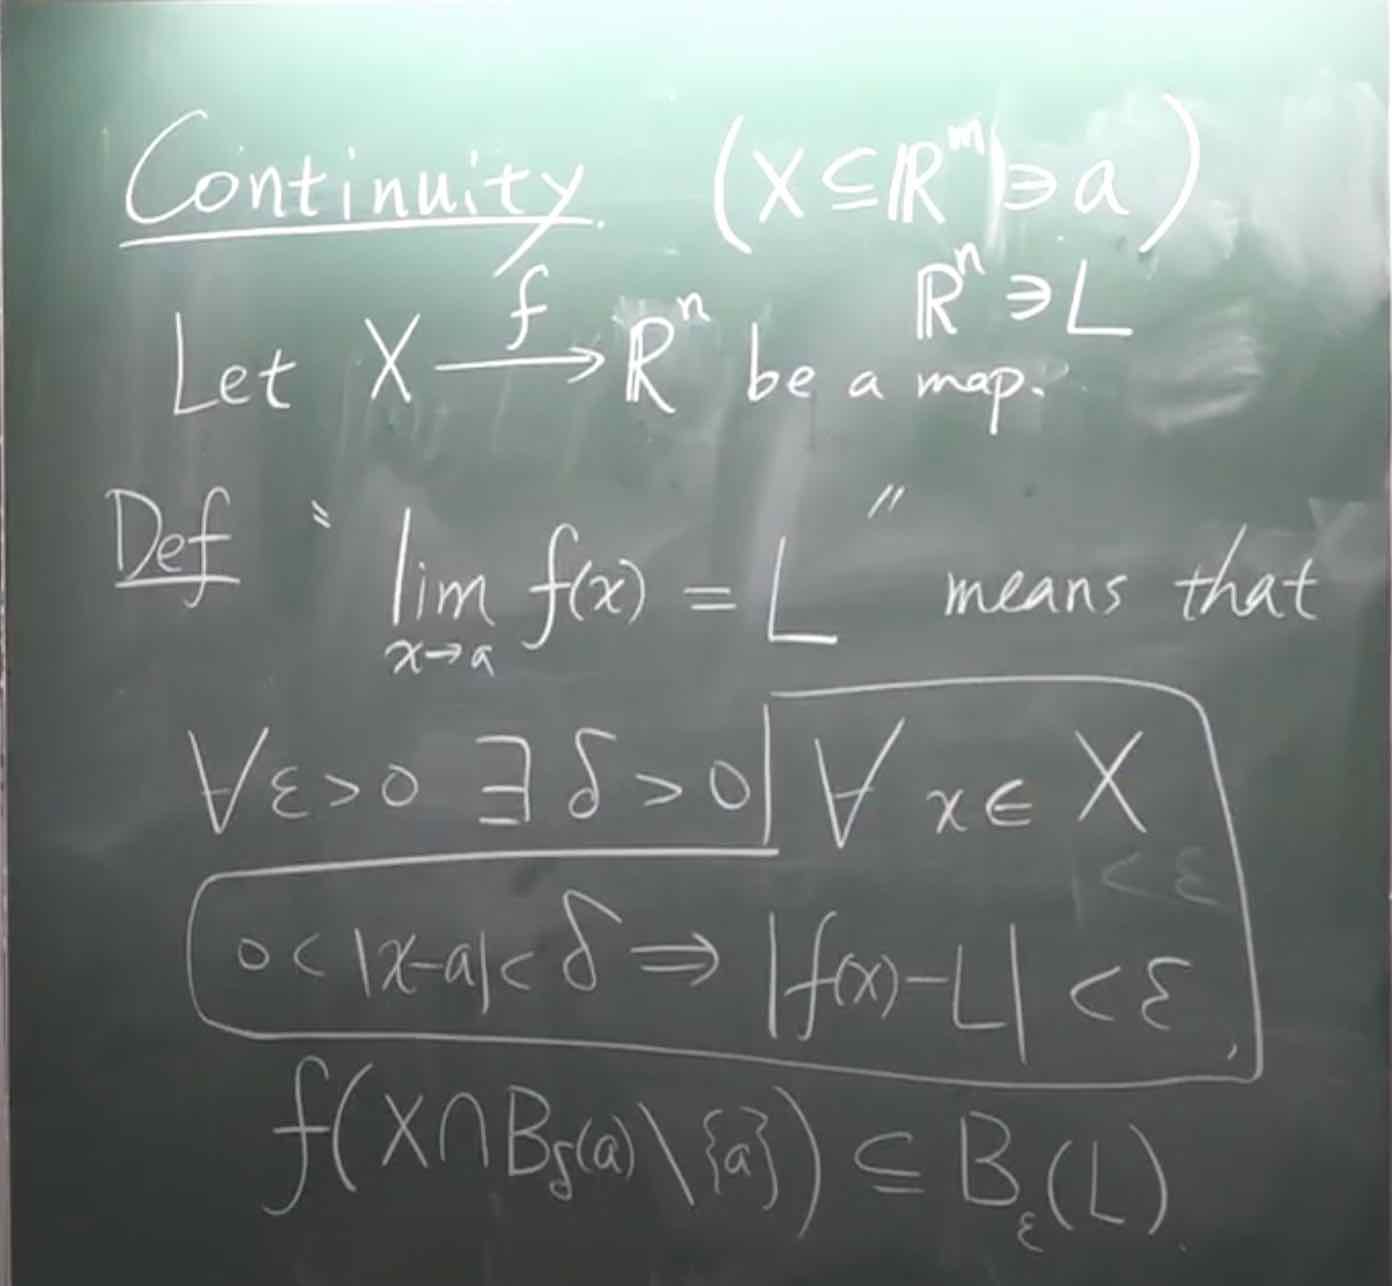 Continuity. (X ⊆ ℝᵐ ∋ a)
ℝⁿ ∋ L
Let X —f→ ℝⁿ be a map.
Def " lim_{x→a} f(x) = L " means that
∀ε>0 ∃ δ>0 | ∀ x ∈ X
<ε
0<|x-a|<δ ⇒ |f(x)-L| <ε,
f(X∩B_δ(a)\{a}) ⊆ B_ε(L).